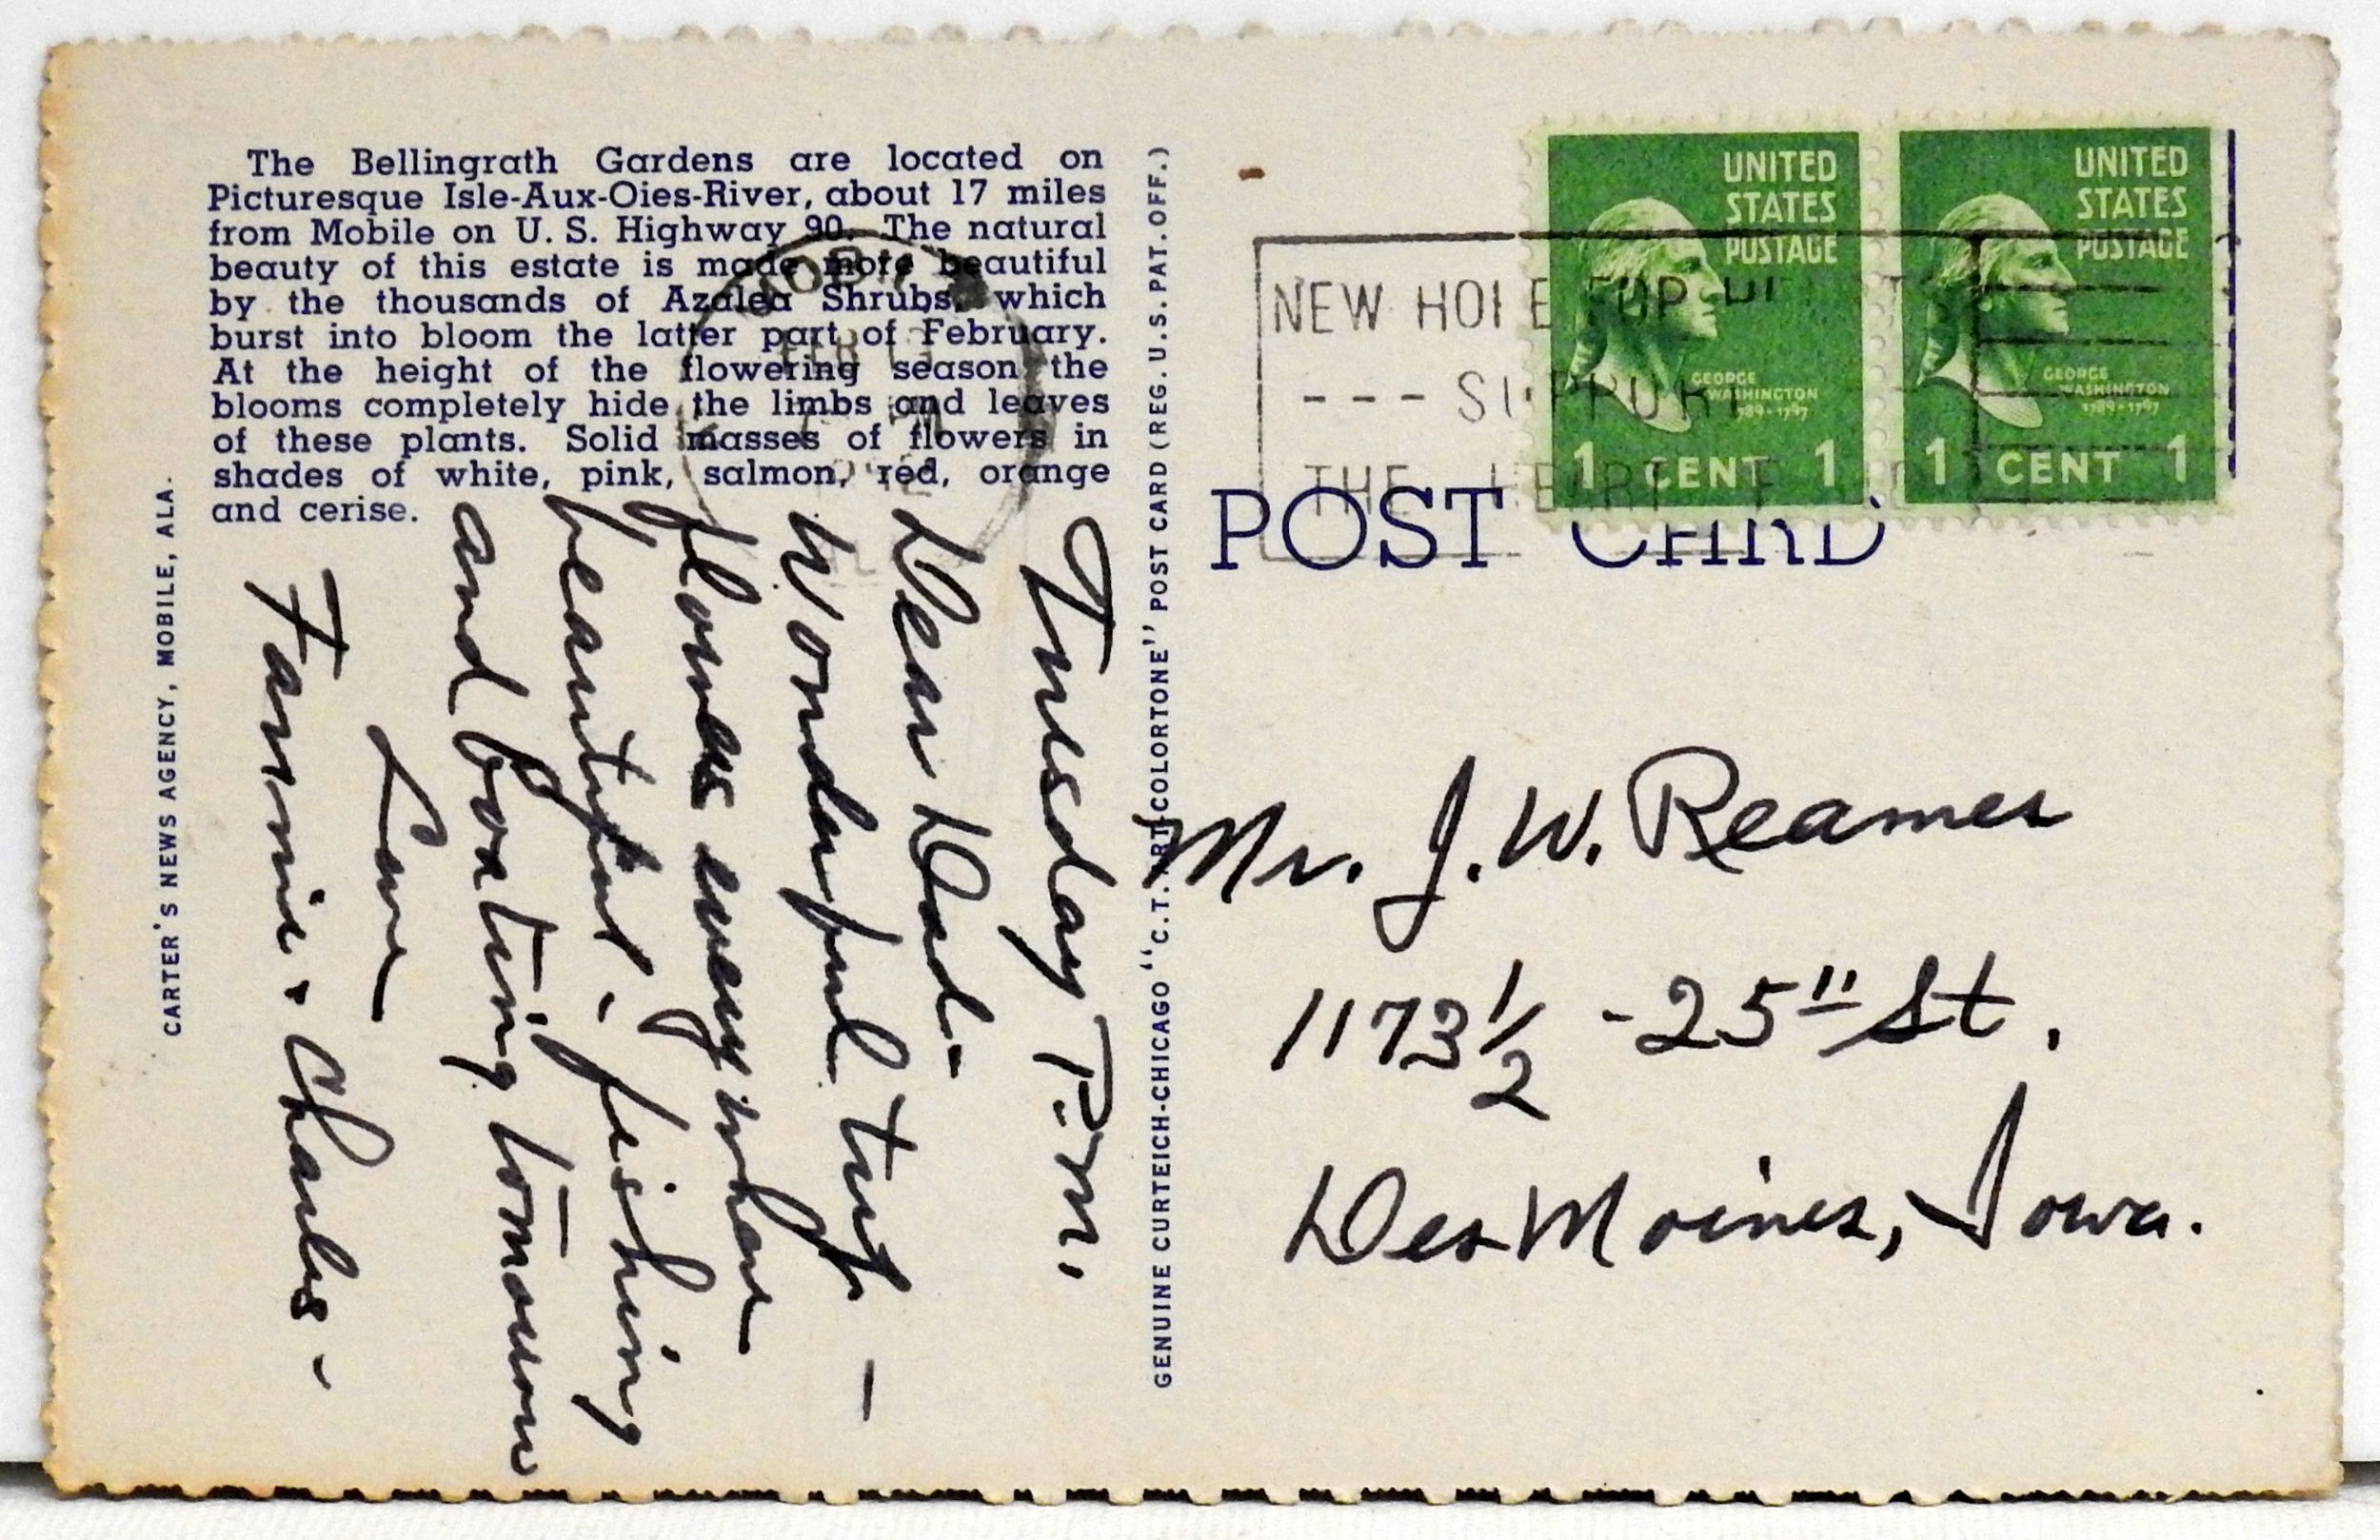 The Bellingrath Gardens are located on
Picturesque Isle-Aux-Oies-River, about 17 miles
from Mobile on U. S. Highway 90. The natural
beauty of this estate is made more beautiful
by the thousands of Azalea Shrubs, which
burst into bloom the latter part of February.
At the height of the flowering season the
blooms completely hide the limbs and leaves
of these plants. Solid masses of flowers in
shades of white, pink, salmon, red, orange
and cerise.
CARTER'S NEWS AGENCY, MOBILE, ALA.
Tuesday P.M.
Dear Dad -
Wonderful trip -
flowers everywhere
beautiful - fishing
and boating tomorrow
Love
Fannie + Charles -
GENUINE CURTEICH-CHICAGO "C.T. ART-COLORTONE" POST CARD (REG. U.S. PAT. OFF.)
UNITED
STATES
POSTAGE
GEORGE
WASHINGTON
1789-1797
1 CENT 1
UNITED
STATES
POSTAGE
GEORGE
WASHINGTON
1789-1797
1 CENT 1
NEW HOPE FOR
--- SUPPORT
THE HEART
POST CARD
Mr. J. W. Reames
1173 1/2 - 25" St.
Des Moines, Iowa.